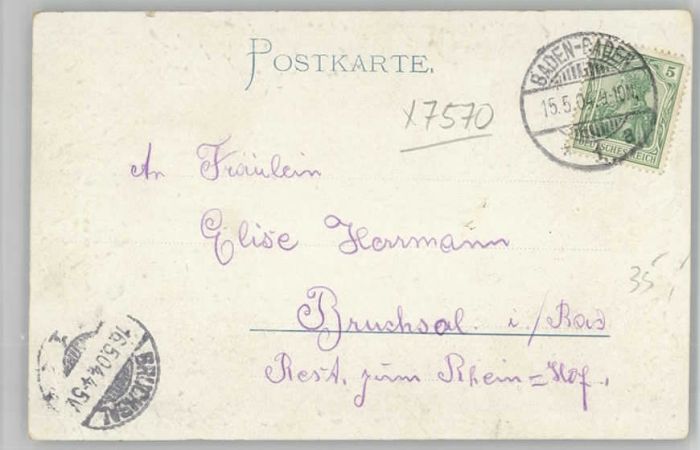 POSTKARTE.
BADEN-BADEN
15.5.04.9-10N.
a
5
DEUTSCHES REICH
X7570
An Fräulein
Elise Herrmann
35,-
Bruchsal. i./Bad
Rest. zum Rhein=Hof.
BRUCHSAL
16.5.04.4-5V